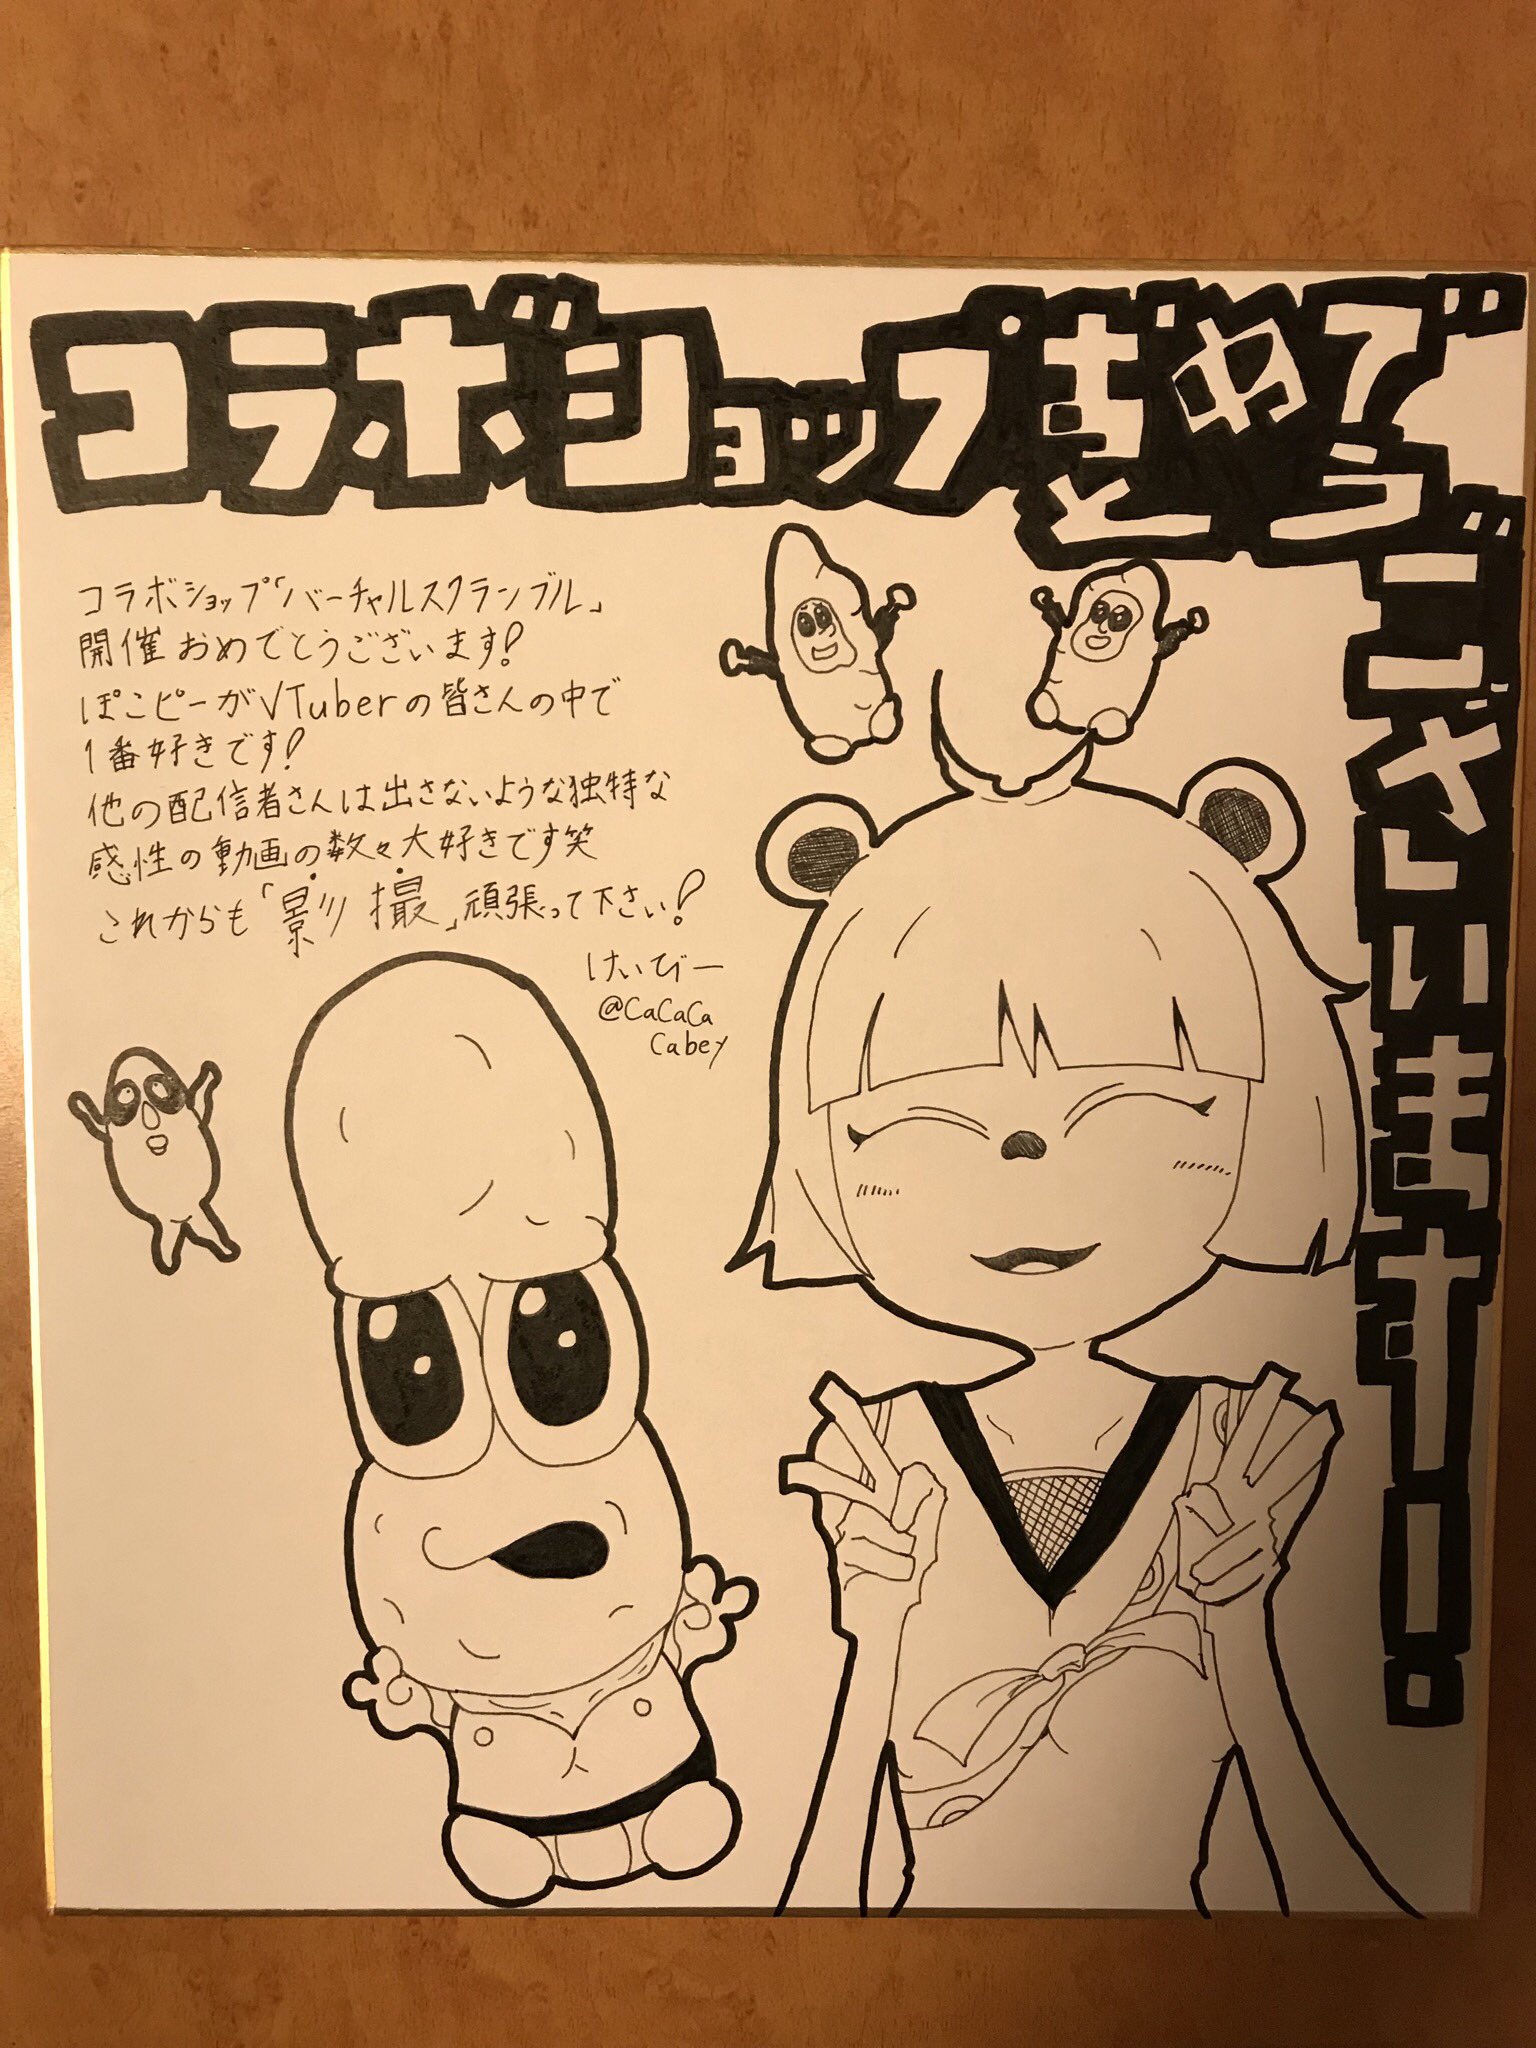 コラボショップぎゃでとうございます！
コラボショップ「バーチャルスクランブル」
開催おめでとうございます！
ぽこピーがVTuberの皆さんの中で
1番好きです！
他の配信者さんは出さないような独特な
感性の動画の数々大好きです笑
これからも「影撮」頑張って下さい！
けいびー
@CaCaCa
Cabey